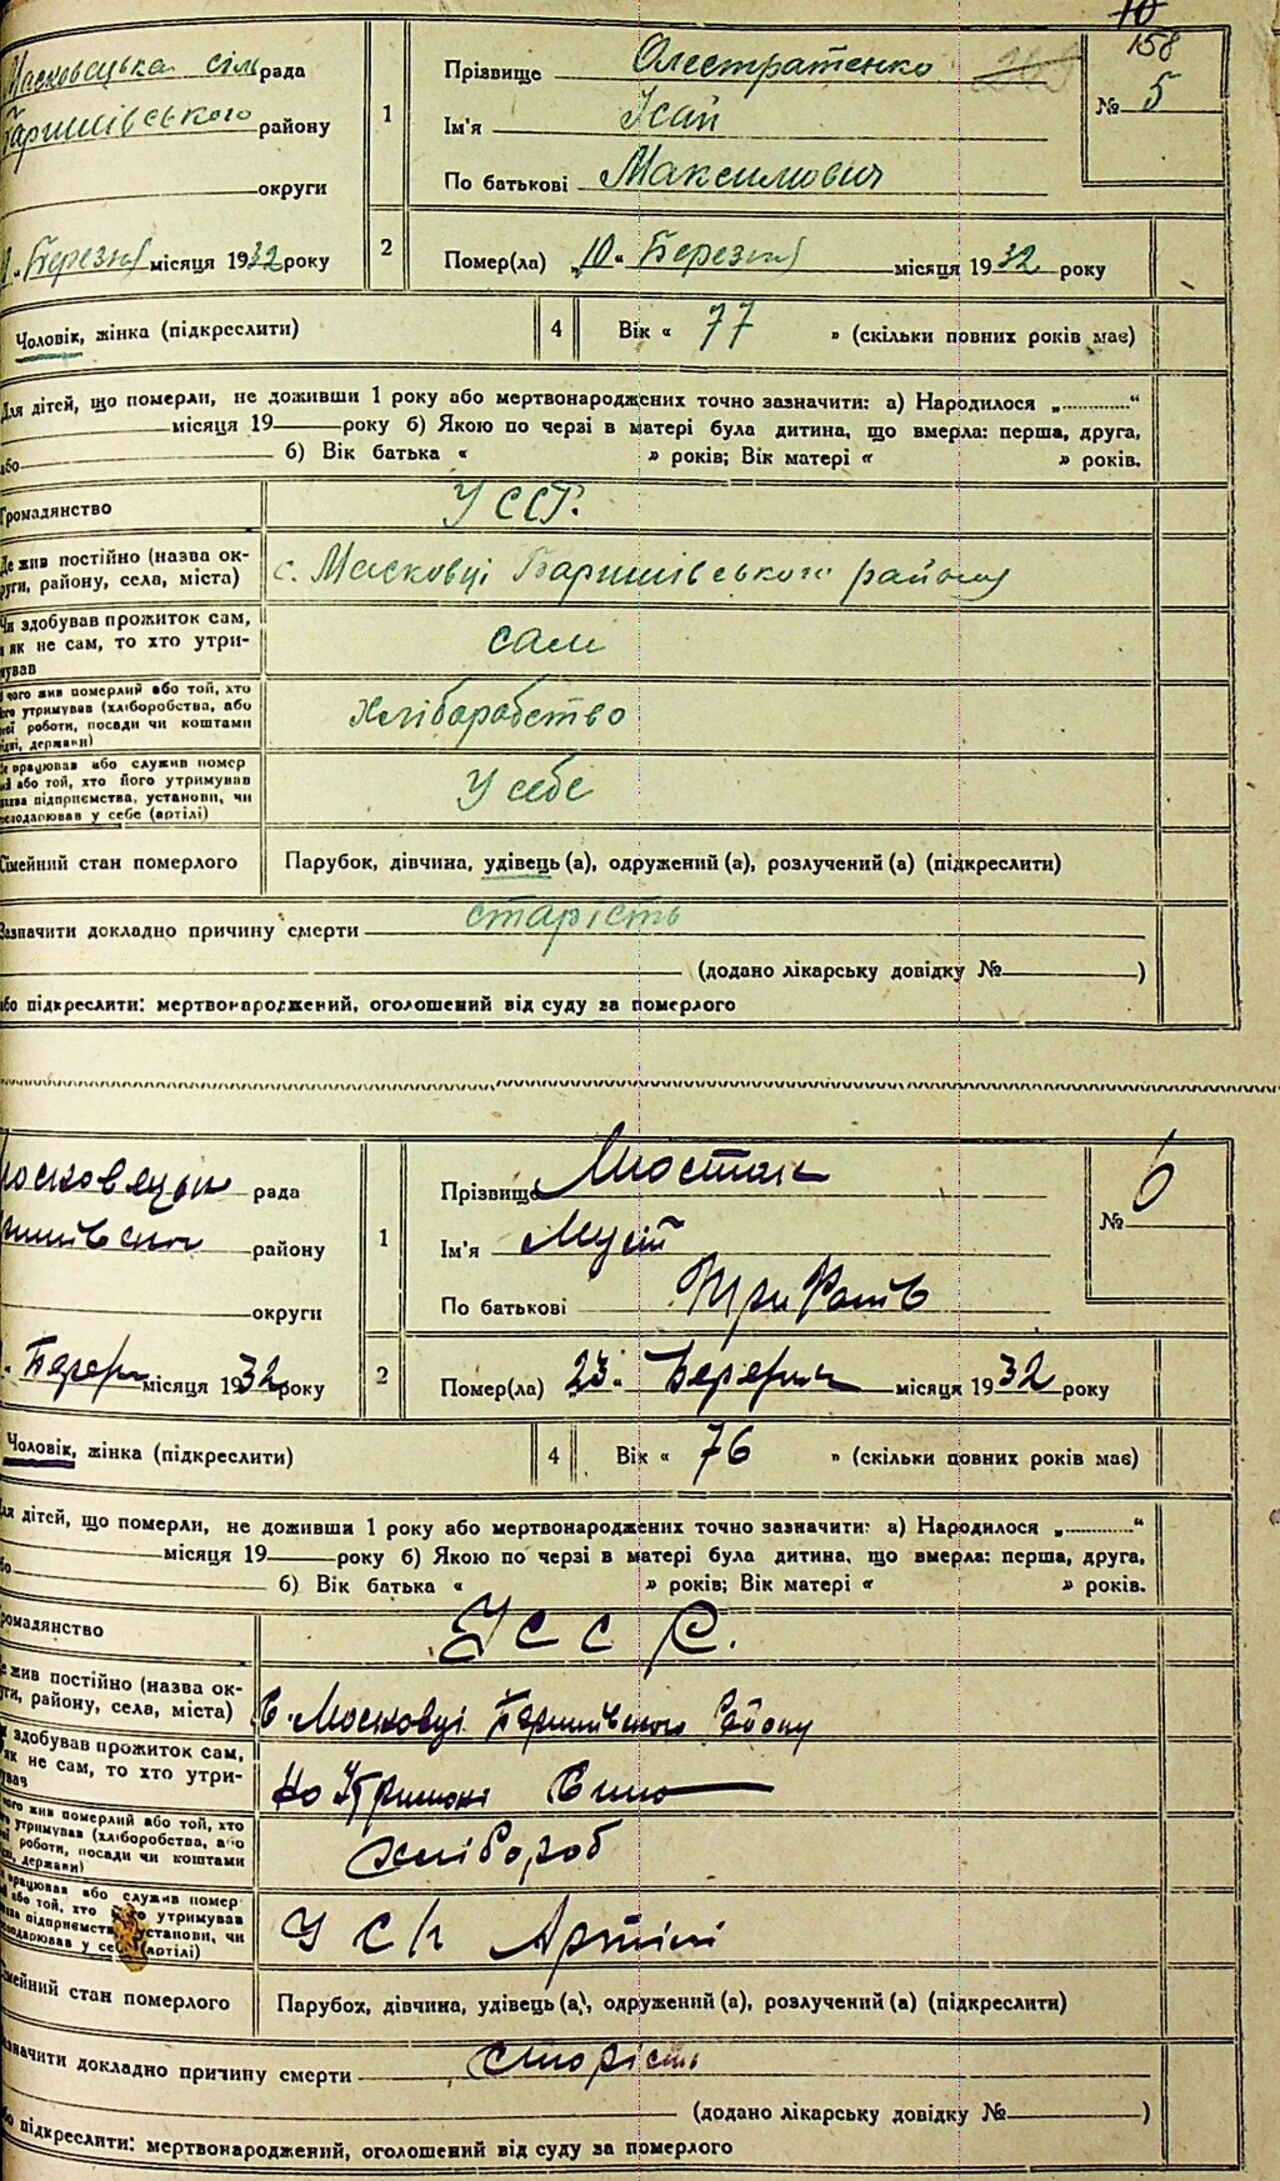 10
158
Масковецька сільрада
Прізвище Олестратенко
№ 5
Баришівського району
1
Ім'я Ісай
округи
По батькові Максимович
Березня місяця 1932 року
2
Помер(ла) „10“ Березня місяця 1932 року
Чоловік, жінка (підкреслити)
4
Вік « 77 » (скільки повних років має)
Для дітей, що померли, не доживши 1 року або мертвонароджених точно зазначити: а) Народилося „............“
місяця 19 року б) Якою по черзі в матері була дитина, що вмерла: перша, друга,
або б) Вік батька « » років; Вік матері « » років.
Громадянство
УССР.
Де жив постійно (назва ок-
руги, району, села, міста)
с. Масковці Баришівського району
Чи здобував прожиток сам,
як не сам, то хто утри-
мував
сам
чого жив померлий або той, хто
його утримував (хліборобства, або
роботи, посади чи коштами
держави)
Хліборобство
працював або служив помер
або той, хто його утримував
назва підприємства, установи, чи
господарював у себе (артілі)
У себе
Сімейний стан померлого
Парубок, дівчина, удівець (а), одружений (а), розлучений (а) (підкреслити)
Зазначити докладно причину смерти старість
(додано лікарську довідку № )
або підкреслити: мертвонароджений, оголошений від суду за померлого
рада
Прізвище
№ 6
району
1
Ім'я Мусій
округи
По батькові
місяця 1932 року
2
Помер(ла) 23“ місяця 1932 року
Чоловік, жінка (підкреслити)
4
Вік « 76 » (скільки повних років має)
Для дітей, що померли, не доживши 1 року або мертвонароджених точно зазначити: а) Народилося „............“
місяця 19 року б) Якою по черзі в матері була дитина, що вмерла: перша, друга,
або б) Вік батька « » років; Вік матері « » років.
Громадянство
УССР.
Де жив постійно (назва ок-
руги, району, села, міста)
с. Московці Баришівського Району
здобував прожиток сам,
як не сам, то хто утри-
мував
На Утриманні Сина
чого жив померлий або той, хто
утримував (хліборобства, або
роботи, посади чи коштами
держави)
хлібороб
працював або служив помер
або той, хто його утримував
назва підприємства, установи, чи
господарював у себе (артілі)
У с/г Артілі
Сімейний стан померлого
Парубок, дівчина, удівець (а), одружений (а), розлучений (а) (підкреслити)
Зазначити докладно причину смерти старість
(додано лікарську довідку № )
або підкреслити: мертвонароджений, оголошений від суду за померлого